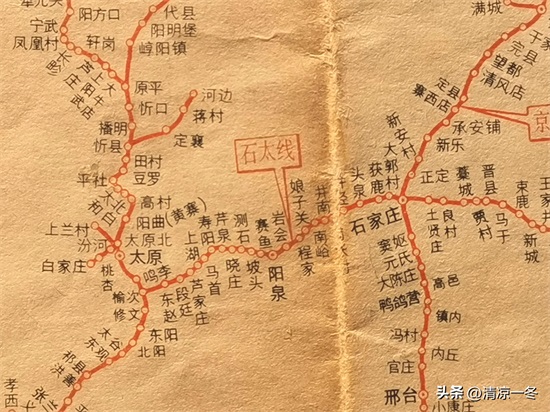 宁武
阳方口
凤凰村
轩岗
代县
阳明堡
崞阳镇
长畛
芦庄
上阳武
大牛店
原平
忻口
播明
忻县
河边
蒋村
定襄
田村
豆罗
平社
高村
阳曲
(黄寨)
太原北
上兰村
汾河
白家庄
太原
桃杏
榆次
修文
鸣李
太谷
东观
祁县
洪善
孝西
张兰
北阳
东阳
上湖
寿阳
芹泉
测石
赛鱼
岩会
阳泉
坡头
晓庄
马首
芦家庄
段廷
东赵
石太线
娘子关
井南
南峪
程家
头泉
获鹿
大郭村
新安村
石家庄
正定
新乐
承安铺
寨西店
定县
清风店
望都
完县
于家
满城
京
藁城
晋县
束鹿
王家井
良村
贾村
马于
新城
土贤庄
窦妪
元氏
大陈庄
鸭鸽营
高邑
镇内
冯村
内丘
官庄
邢台
小康庄
头条 @清凉一冬